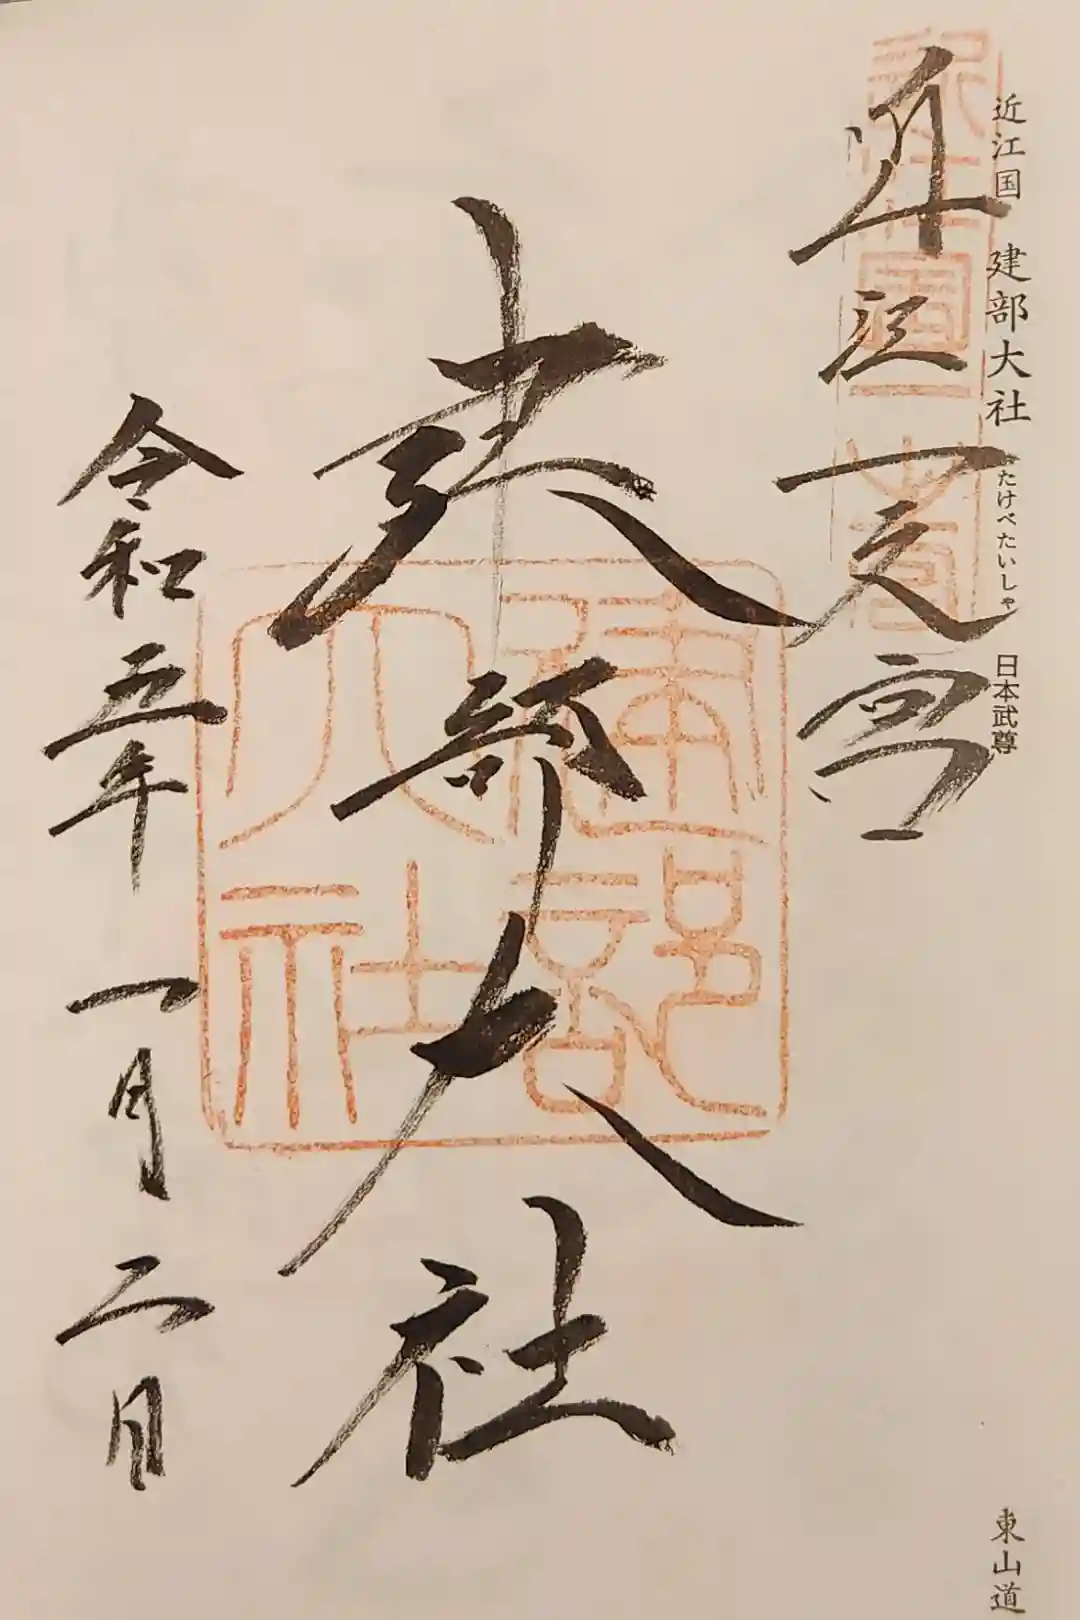 近江国 建部大社 たけべたいしゃ 日本武尊
東山道
近江一之宮
建部大社
令和五年一月二日
近江国一宮
建部大社